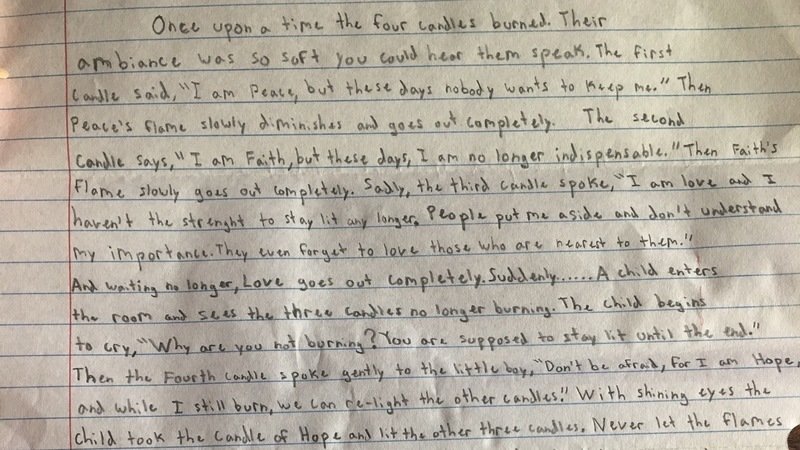 Once upon a time the four candles burned. Their
ambiance was so soft you could hear them speak. The first
candle said, "I am Peace, but these days nobody wants to keep me." Then
Peace's flame slowly diminishes and goes out completely. The second
candle says, "I am Faith, but these days, I am no longer indispensable." Then Faith's
flame slowly goes out completely. Sadly, the third candle spoke, "I am love and I
haven't the strenght to stay lit any longer. People put me aside and don't understand
my importance. They even forget to love those who are nearest to them."
And waiting no longer, Love goes out completely. Suddenly...... A child enters
the room and sees the three candles no longer burning. The child begins
to cry, "Why are you not burning? You are supposed to stay lit until the end."
Then the Fourth candle spoke gently to the little boy, "Don't be afraid, for I am Hope,
and while I still burn, we can re-light the other candles." With shining eyes the
child took the Candle of Hope and lit the other three candles. Never let the flames